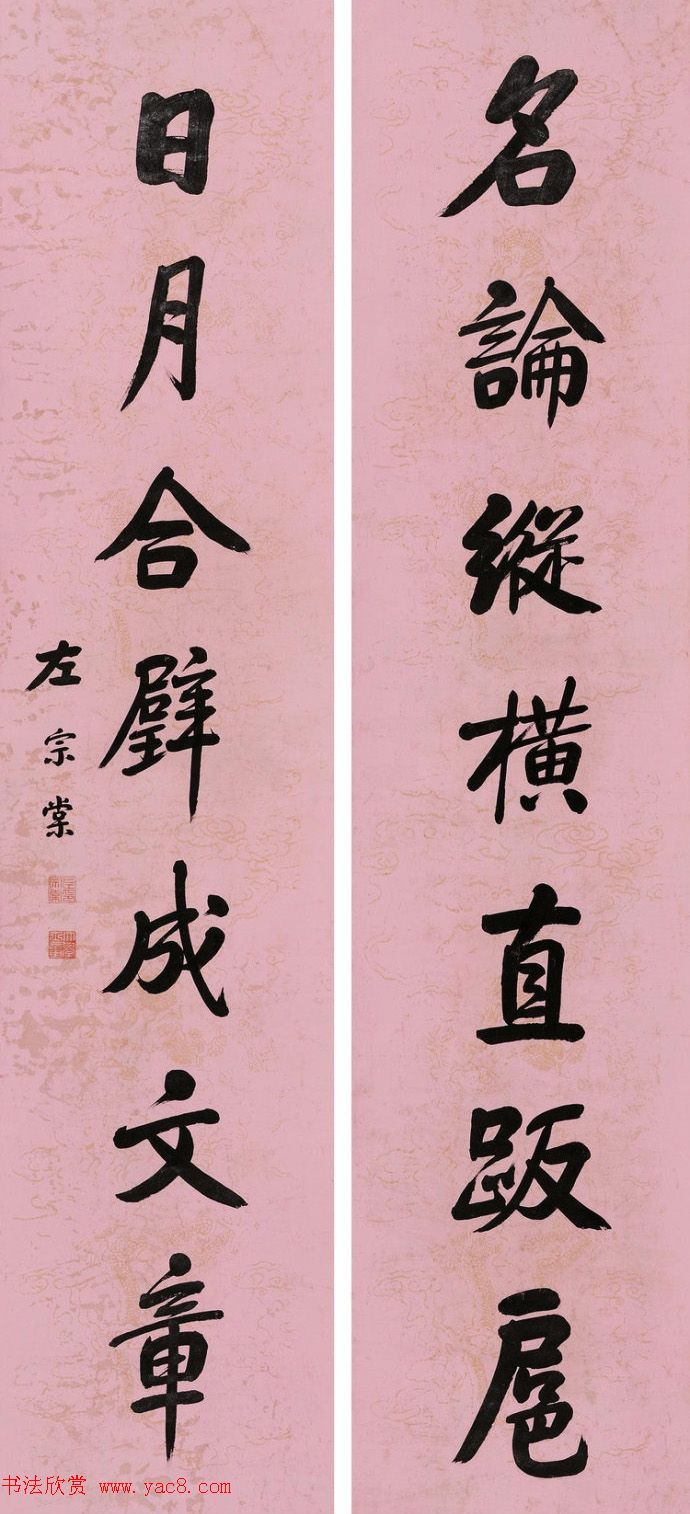 名論縱橫直跋扈
日月合璧成文章
左宗棠
书法欣赏 www.yac8.com